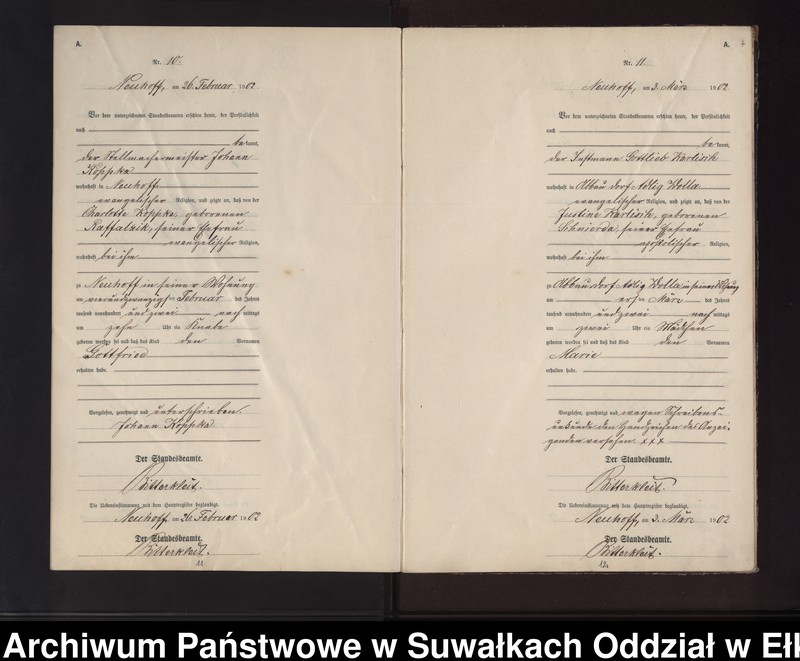 A.
Nr. 10.
Neuhoff, am 26. Februar 1902
Vor dem unterzeichneten Standesbeamten erschien heute, der Persönlichkeit
nach
bekannt,
der Stellmachermeister Johann
Koppka
wohnhaft in Neuhoff
evangelischer Religion, und zeigte an, daß von der
Charlotte Koppka, geborenen
Raffalzik, seiner Ehefrau
evangelischer Religion,
wohnhaft bei ihm
zu Neuhoff in seiner Wohnung
am vierundzwanzigsten Februar des Jahres
tausend neunhundert und zwei nachmittags
um zehn Uhr ein Knabe
geboren worden sei und daß das Kind den Vornamen
Gottfried
erhalten habe.
Vorgelesen, genehmigt und unterschrieben.
Johann Koppka
Der Standesbeamte.
Bitterkleit.
Die Uebereinstimmung mit dem Hauptregister beglaubigt.
Neuhoff, am 26. Februar 1902
Der Standesbeamte.
Bitterkleit.
11
A.
Nr. 11.
Neuhoff, am 3. März 1902
Vor dem unterzeichneten Standesbeamten erschien heute, der Persönlichkeit
nach
bekannt,
der Instmann Gottlieb Karlisik
wohnhaft in Abbau dorf Adlig Wolla
evangelischer Religion, und zeigte an, daß von der
Justine Karlisik, geborenen
Schnierda, seiner Ehefrau
apostolischer Religion,
wohnhaft bei ihm
zu Abbau dorf Adlig Wolla in seiner
am ersten März des Jahres
tausend neunhundert und zwei nachmittags
um zwei Uhr ein Mädchen
geboren worden sei und daß das Kind den Vornamen
Marie
erhalten habe.
Vorgelesen, genehmigt und wegen Schreibens-
unkunde den Handzeichen des Anzei-
genden versehen. x x x
Der Standesbeamte.
Bitterkleit.
Die Uebereinstimmung mit dem Hauptregister beglaubigt.
Neuhoff, am 3. März 1902
Der Standesbeamte.
Bitterkleit.
12
Archiwum Państwowe w Suwałkach Oddział w Ełk